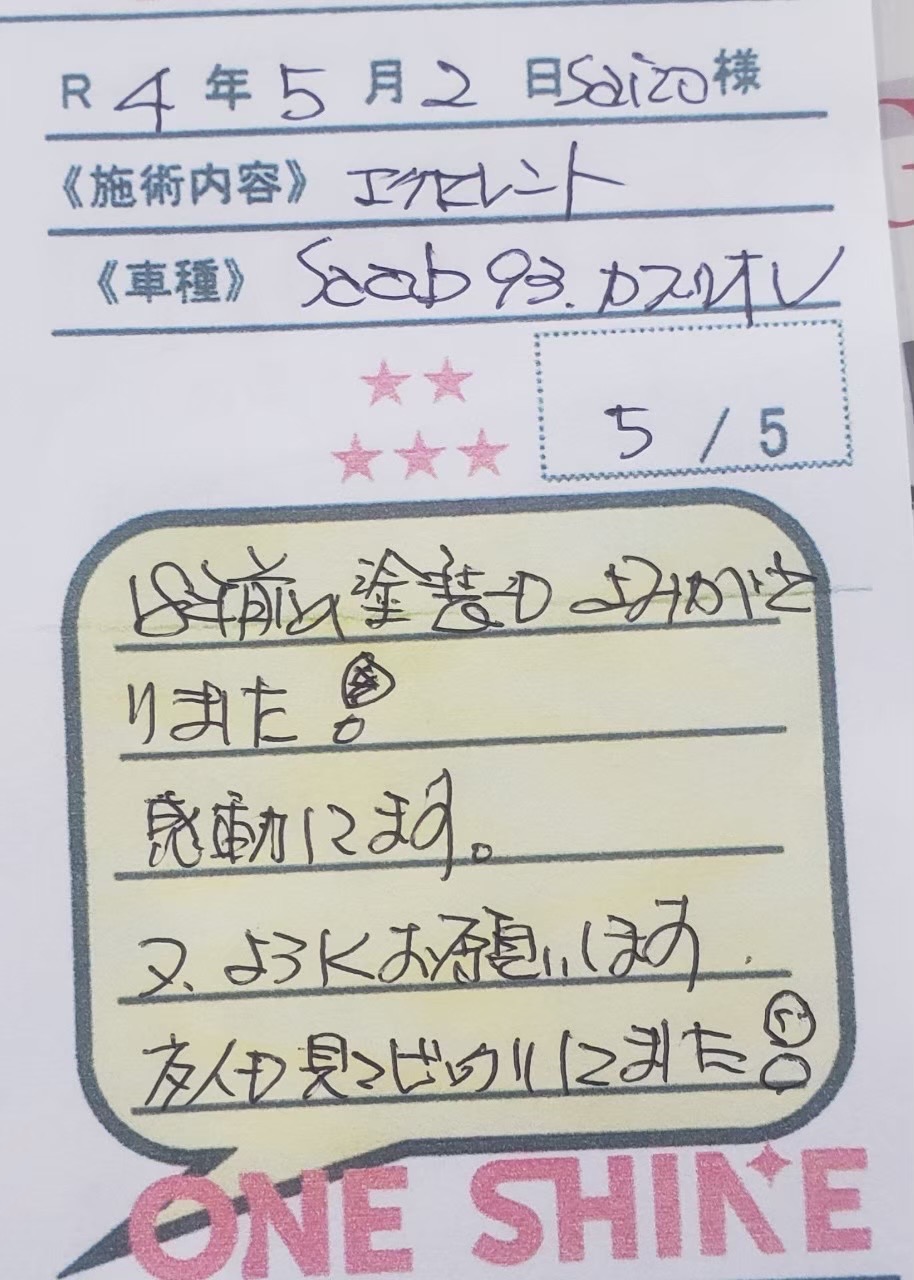 R 4 年 5 月 2 日 Saizo 様
《施術内容》 エクセレント
《車種》 Saab 93. カブリオレ
5 / 5
18年前の塗装も よみがえ
りました!
感動してます。
又、よろしくお願いします.
友人も見てビックリしてました!
ONE SHINE